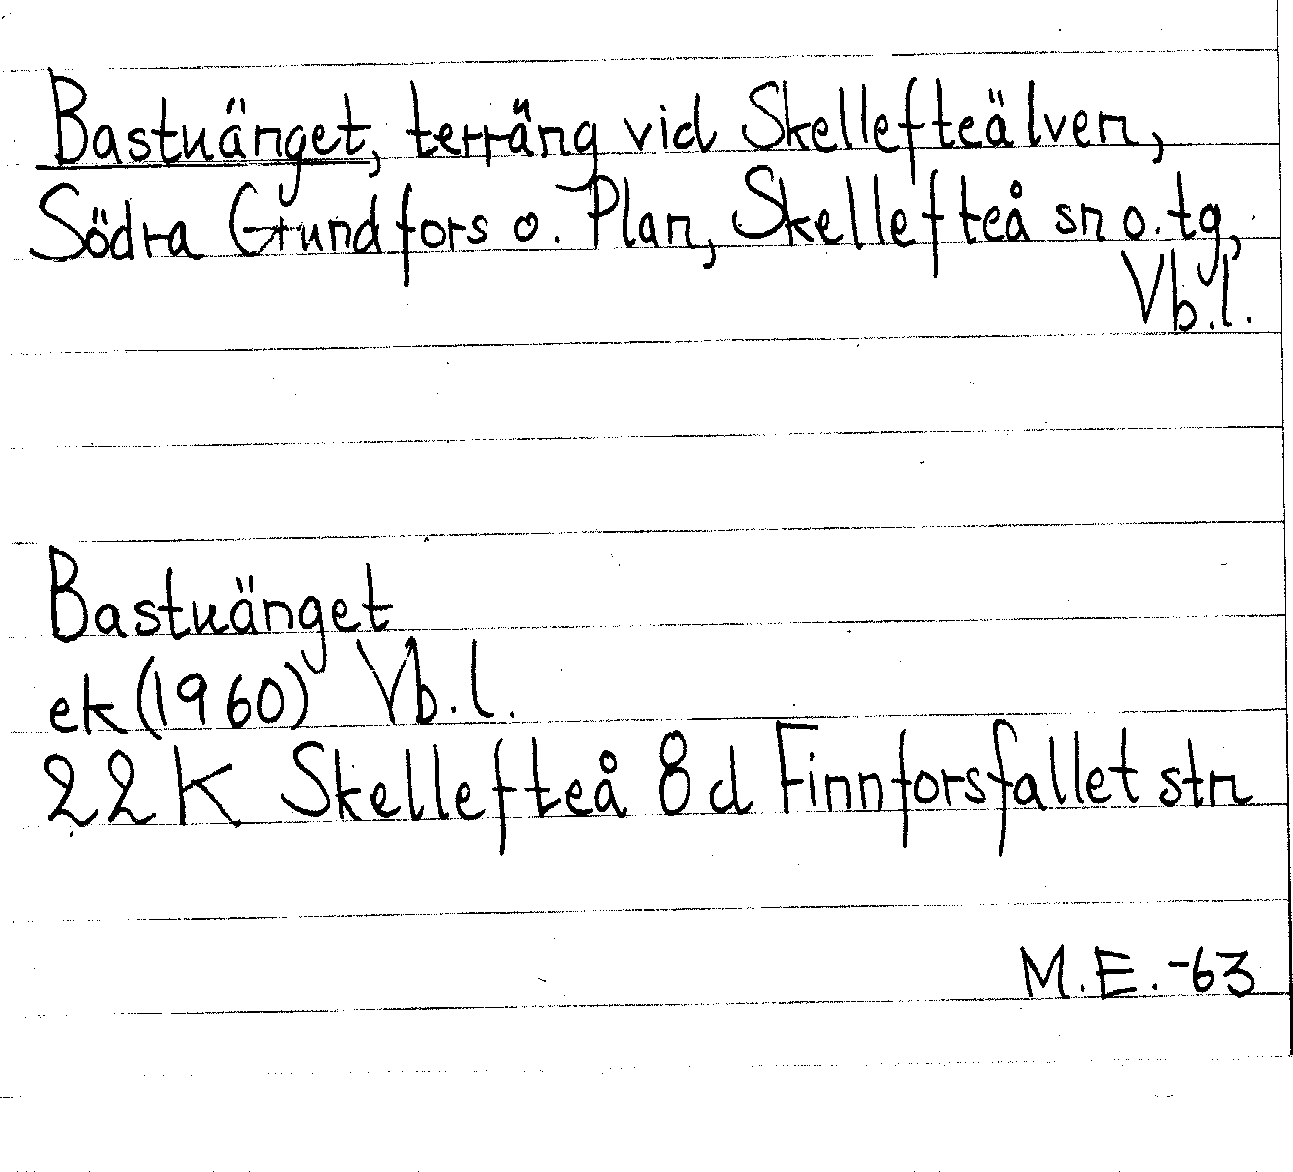 Bastuänget, terräng vid Skellefteälven,
Södra Grundfors o. Plan, Skellefteå sn o. tg,
Vb.l.
Bastuänget
ek (1960) Vb.l.
22 K Skellefteå 8 d Finnforsfallet str
M.E.-63